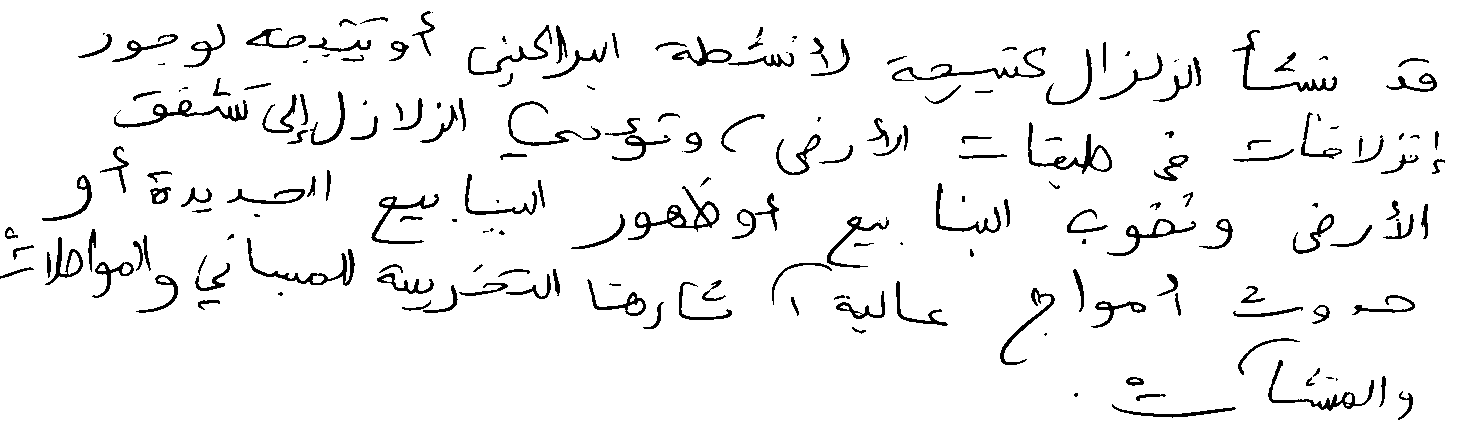 قد ينشأ الزلزال كنتيجة لأنشطة البراكين أو نتيجة لوجود
إنزلاقات في طبقات الأرض، وتؤدي الزلازل إلى تشقق
الأرض ونضوب الينابيع أو ظهور الينابيع الجديدة أو
حدوث أمواج عالية، آثارها التخريبية للمباني والمواصلات
والمنشآت.